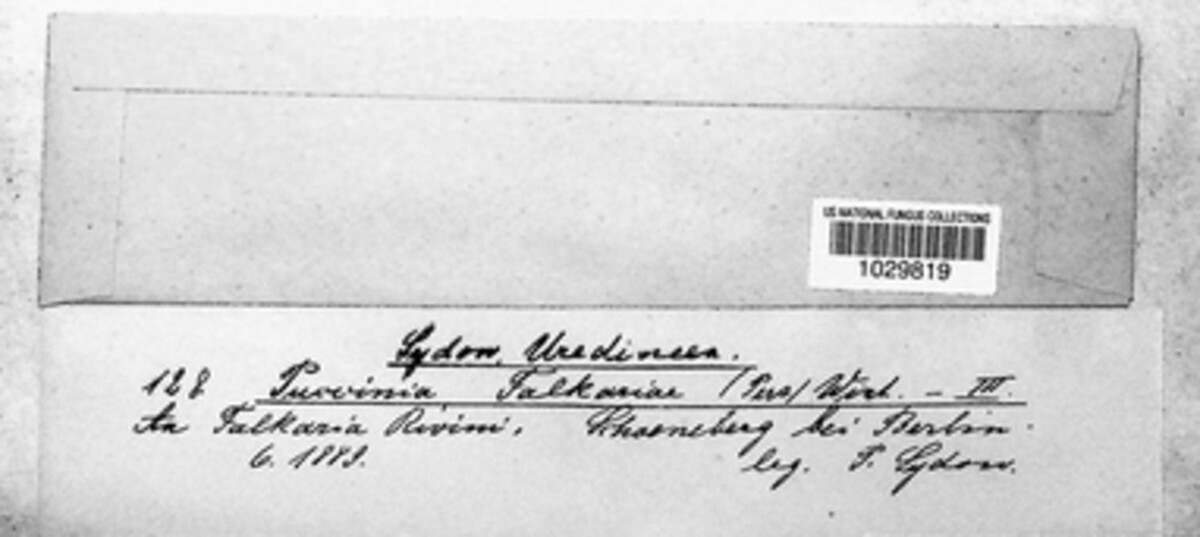 US NATIONAL FUNGUS COLLECTIONS
1029819
Sydow, Uredineen.
128 Puccinia Falkariae (Pers) Wint. – III.
An Falkaria Rivini. Schoeneberg bei Berlin.
6. 1889. leg. P. Sydow.